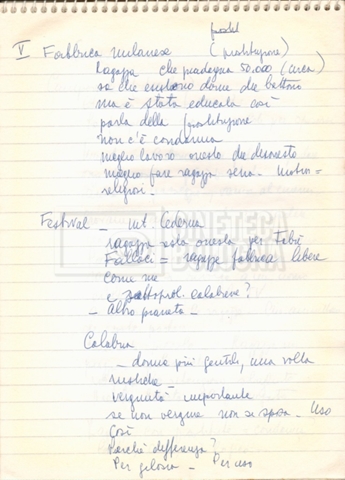 V Fabbrica milanese (prostituzione)
Ragazza che guadagna 50.000 (circa)
sa che esistono donne che battono
ma è stata educata così
parla della prostituzione
non c'è condanna
meglio lavoro onesto che disonesto
meglio fare ragazza seria
religiosi.
Festival - int. Cederna
ragazza esta onesta per
Fallaci = ragazze fabbrica libere
come me
e calabrese?
- Altro pianeta -
Calabria
- donne più gentili, una volta
rustiche -
Verginità importante
se non vergine non si sposa - Uso
Così
Perchè differenza?
Per gelosia - Per uso
CINETECA
BOLOGNA